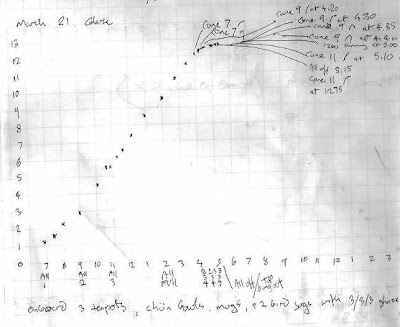 March 21. Glaze
cone 9 / at 4.20
cone 7
cone 9 at 4.30
cone 7
cone 9 at 4.35
cone 9 at 4.40
1260 at 5.00
cone 11 at 5.10
All off 5.15
cone 11
at 1275
13
12
11
10
9
8
7
6
5
4
3
2
1
0 7 8 9 10 11 12 1 2 3 4 5 6 7 8 9 10 11 12 1 2 3
All All All All
1 2 3 Full
All off
onboard 3 teapots, chün bowls, mugs, + 2 bird jugs with 3/3/3